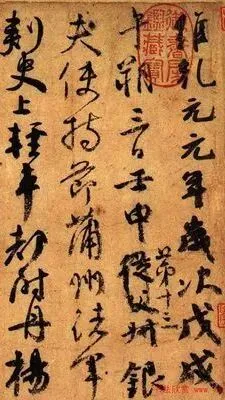 維乾元元年歲次戊戌
午朔三日壬申第十三從父叔銀
夫使持節蒲州諸軍
刺史上輕車都尉丹楊